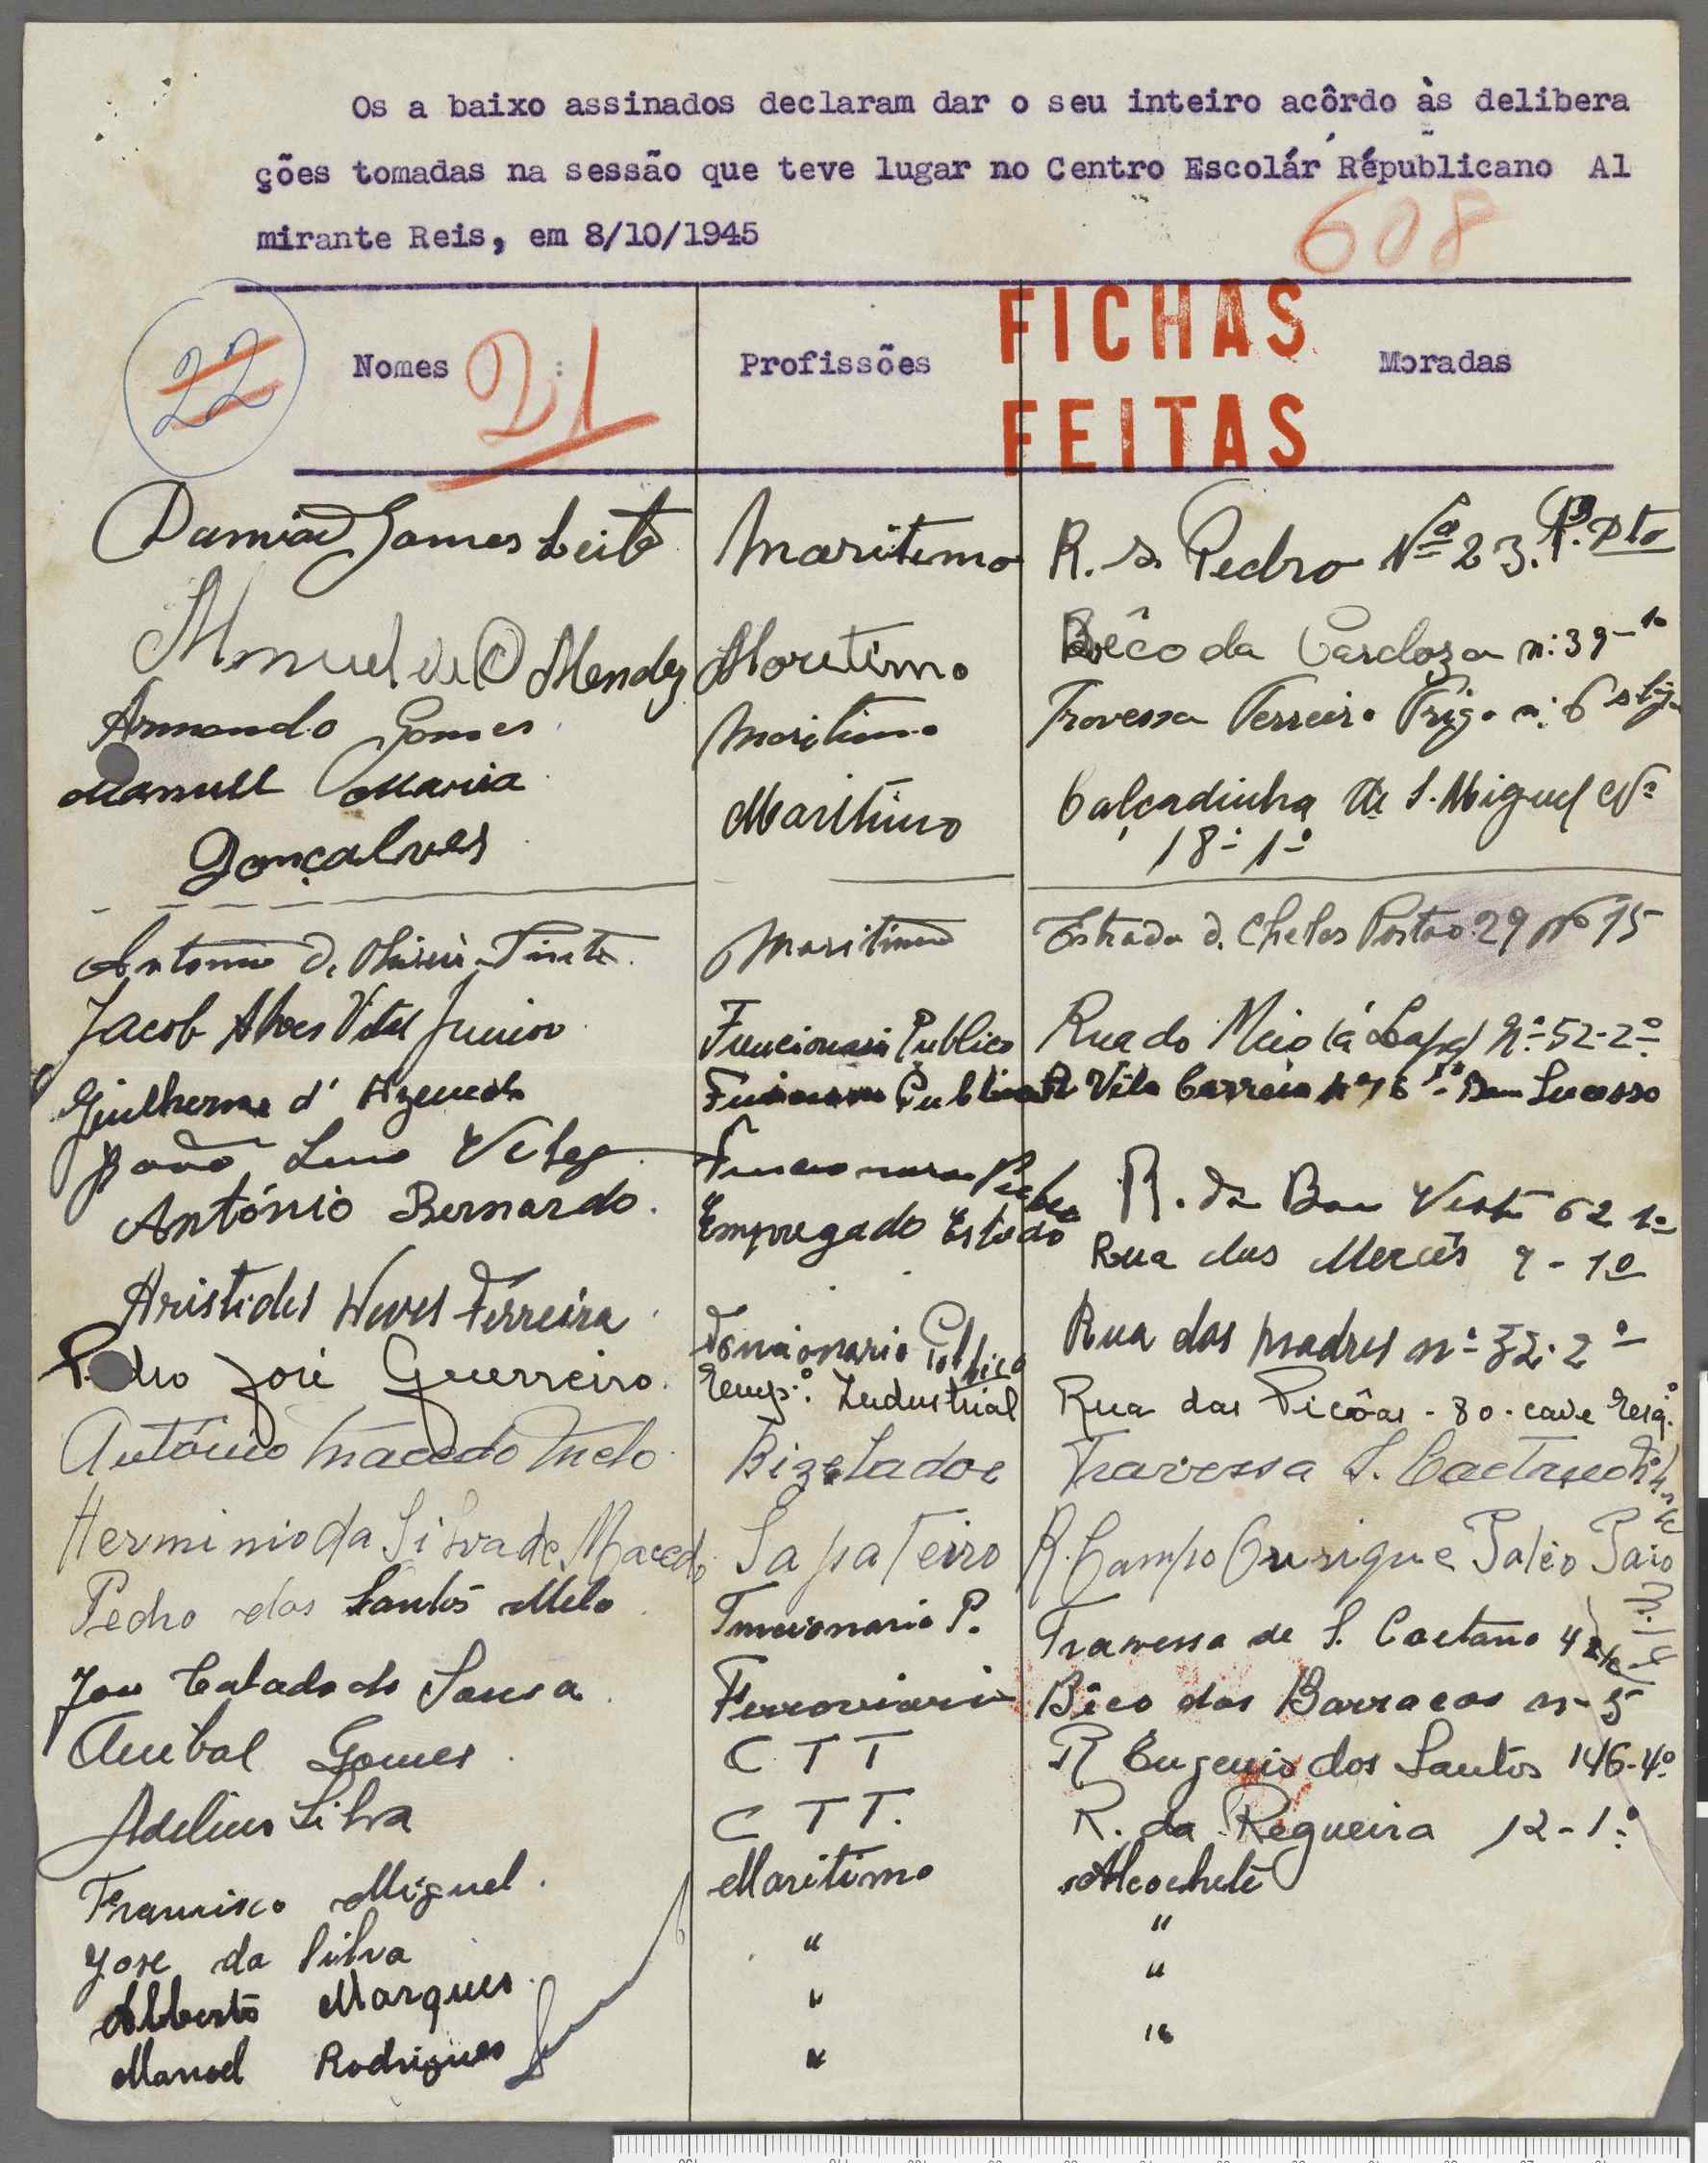 Os a baixo assinados declaram dar o seu inteiro acôrdo às delibera
ções tomadas na sessão que teve lugar no Centro Escolár Républicano Al
mirante Reis, em 8/10/1945
608
FICHAS
22 Nomes : 21 Profissões Moradas
FEITAS
Damião Gomes Leite Maritimo R. S. Pedro Nº 23. Dto
Manuel de Mendes Maritimo Bêco da Cardoza n: 39-1º
Armando Gomes Maritimo Travessa Terreiro Trigo n: 6
Manuel Maria Maritimo Calçadinha de S. Miguel Nº
Gonçalves 18-1º
Antonio d. Oliveira Pinto Maritimo Estrada d. Chelas Portão 29 nº 15
Jacob Alves Vital Junior Funcionario Publico Rua do Meio (á Lapa) Nº 52-2º
Guilherme d' Azevedo Funcionario Publico R Vila Correia nº 16 Bom Sucesso
João Lino Funcionario R. da Boa Vista 62 1º
António Bernardo. Empregado Estado Rua das Mercês 9-1º
Aristides Neves Ferreira Foncionario Publico Rua das Madres nº 32-2º
Pedro José Guerreiro. Empº. Industrial Rua das Picôas - 80 - cave Esqº.
António Macedo Melo Bizelador Travessa S. Caetano
Herminio da Silva de Macedo Sapateiro R. Campo Ourique Pateo
Pedro dos Santos Melo Funcionario P. Travessa de S. Caetano 4
Calado de Sousa Ferroviario Bêco das Barracas nº 5
Anibal Gomes CTT R Eugenio dos Santos 146-4º
Adelino Silva CTT. R. da Regueira 12-1º
Francisco Miguel. Maritimo Alcochete
Jose da Silva " "
Alberto Marques. " "
Manoel Rodrigues " "